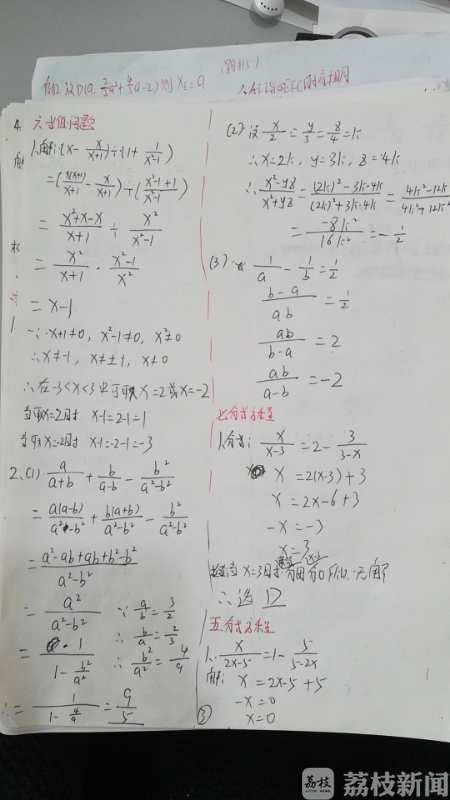 4. 六、求值问题
1. 解: (x - x/(x+1)) ÷ (1 + 1/(x²-1))
= (x(x+1)/(x+1) - x/(x+1)) ÷ ((x²-1+1)/(x²-1))
= (x²+x-x)/(x+1) ÷ x²/(x²-1)
= x²/(x+1) · (x²-1)/x²
= x-1
∵ x+1≠0, x²-1≠0, x²≠0
∴ x≠-1, x≠±1, x≠0
∴ 在-3<x<3中可取x=2或x=-2
当取x=2时 x-1=2-1=1
当取x=-2时 x-1=-2-1=-3
2. (1) a/(a+b) + b/(a-b) - b²/(a²-b²)
= a(a-b)/(a²-b²) + b(a+b)/(a²-b²) - b²/(a²-b²)
= (a²-ab+ab+b²-b²)/(a²-b²)
= a²/(a²-b²) ∵ a/b = 3/2
∴ b/a = 2/3
= 1/(1 - b²/a²) ∴ b²/a² = 4/9
∴ = 1/(1 - 4/9) = 9/5
(2) 设 x/2 = y/3 = z/4 = k
∴ x=2k, y=3k, z=4k
∴ (x²-yz)/(x²+yz) = ((2k)²-3k·4k)/((2k)²+3k·4k) = (4k²-12k)/(4k²+12k)
= -8k²/16k² = -1/2
(3) 1/a - 1/b = 1/2
(b-a)/ab = 1/2
ab/(b-a) = 2
ab/(a-b) = -2
1. x/(x-3) = 2 - 3/(3-x)
x = 2(x-3)+3
x = 2x-6+3
-x = -3
x=3
∴ 选 D
五、分式方程
1. x/(2x-5) = 1 - 5/(5-2x)
解: x = 2x-5+5
-x=0
③ x=0
荔枝
荔枝新闻